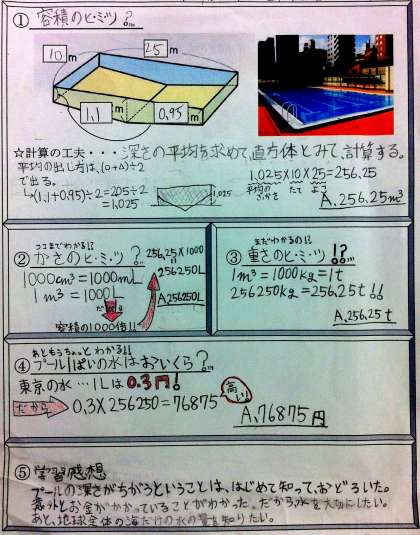 ① 容積のヒ・ミ・ツ?
10 m
25 m
1,1 m
0,95 m
☆計算の工夫・・・深さの平均を求めて、直方体とみて、計算する。
平均の出し方は、(○+△)÷2
で出る。
1.025×10×25=256.25
平均の たて よこ
ふかさ
↳(1,1+0,95)÷2=2.05÷2
=1,025
1,025
A.256.25m³
ココまでわかる!?
② かさのヒ・ミ・ツ?
256,25×1000
1000cm³=1000mL
256250L
1m³=1000L
A.256250L
だから
容積の1000倍!!
まだわかるの!?
③ 重さのヒ・ミ・ツ!?
1m³=1000kg=1t
256250kg=256,25t!!
A.256,25t
あともうちょっとわかる!!
④ プール1ぱいの水はおいくら?
東京の水…1Lは0.3円!
だから
0,3×256250=76875
高い!
A.76875円
⑤ 学習感想
プールの深さがちがうということは、はじめて知って、おどろいた。
意外とお金がかかっていることがわかった。だから、水を大切にしたい。
あと、地球全体の海だけの水の量を知りたい。